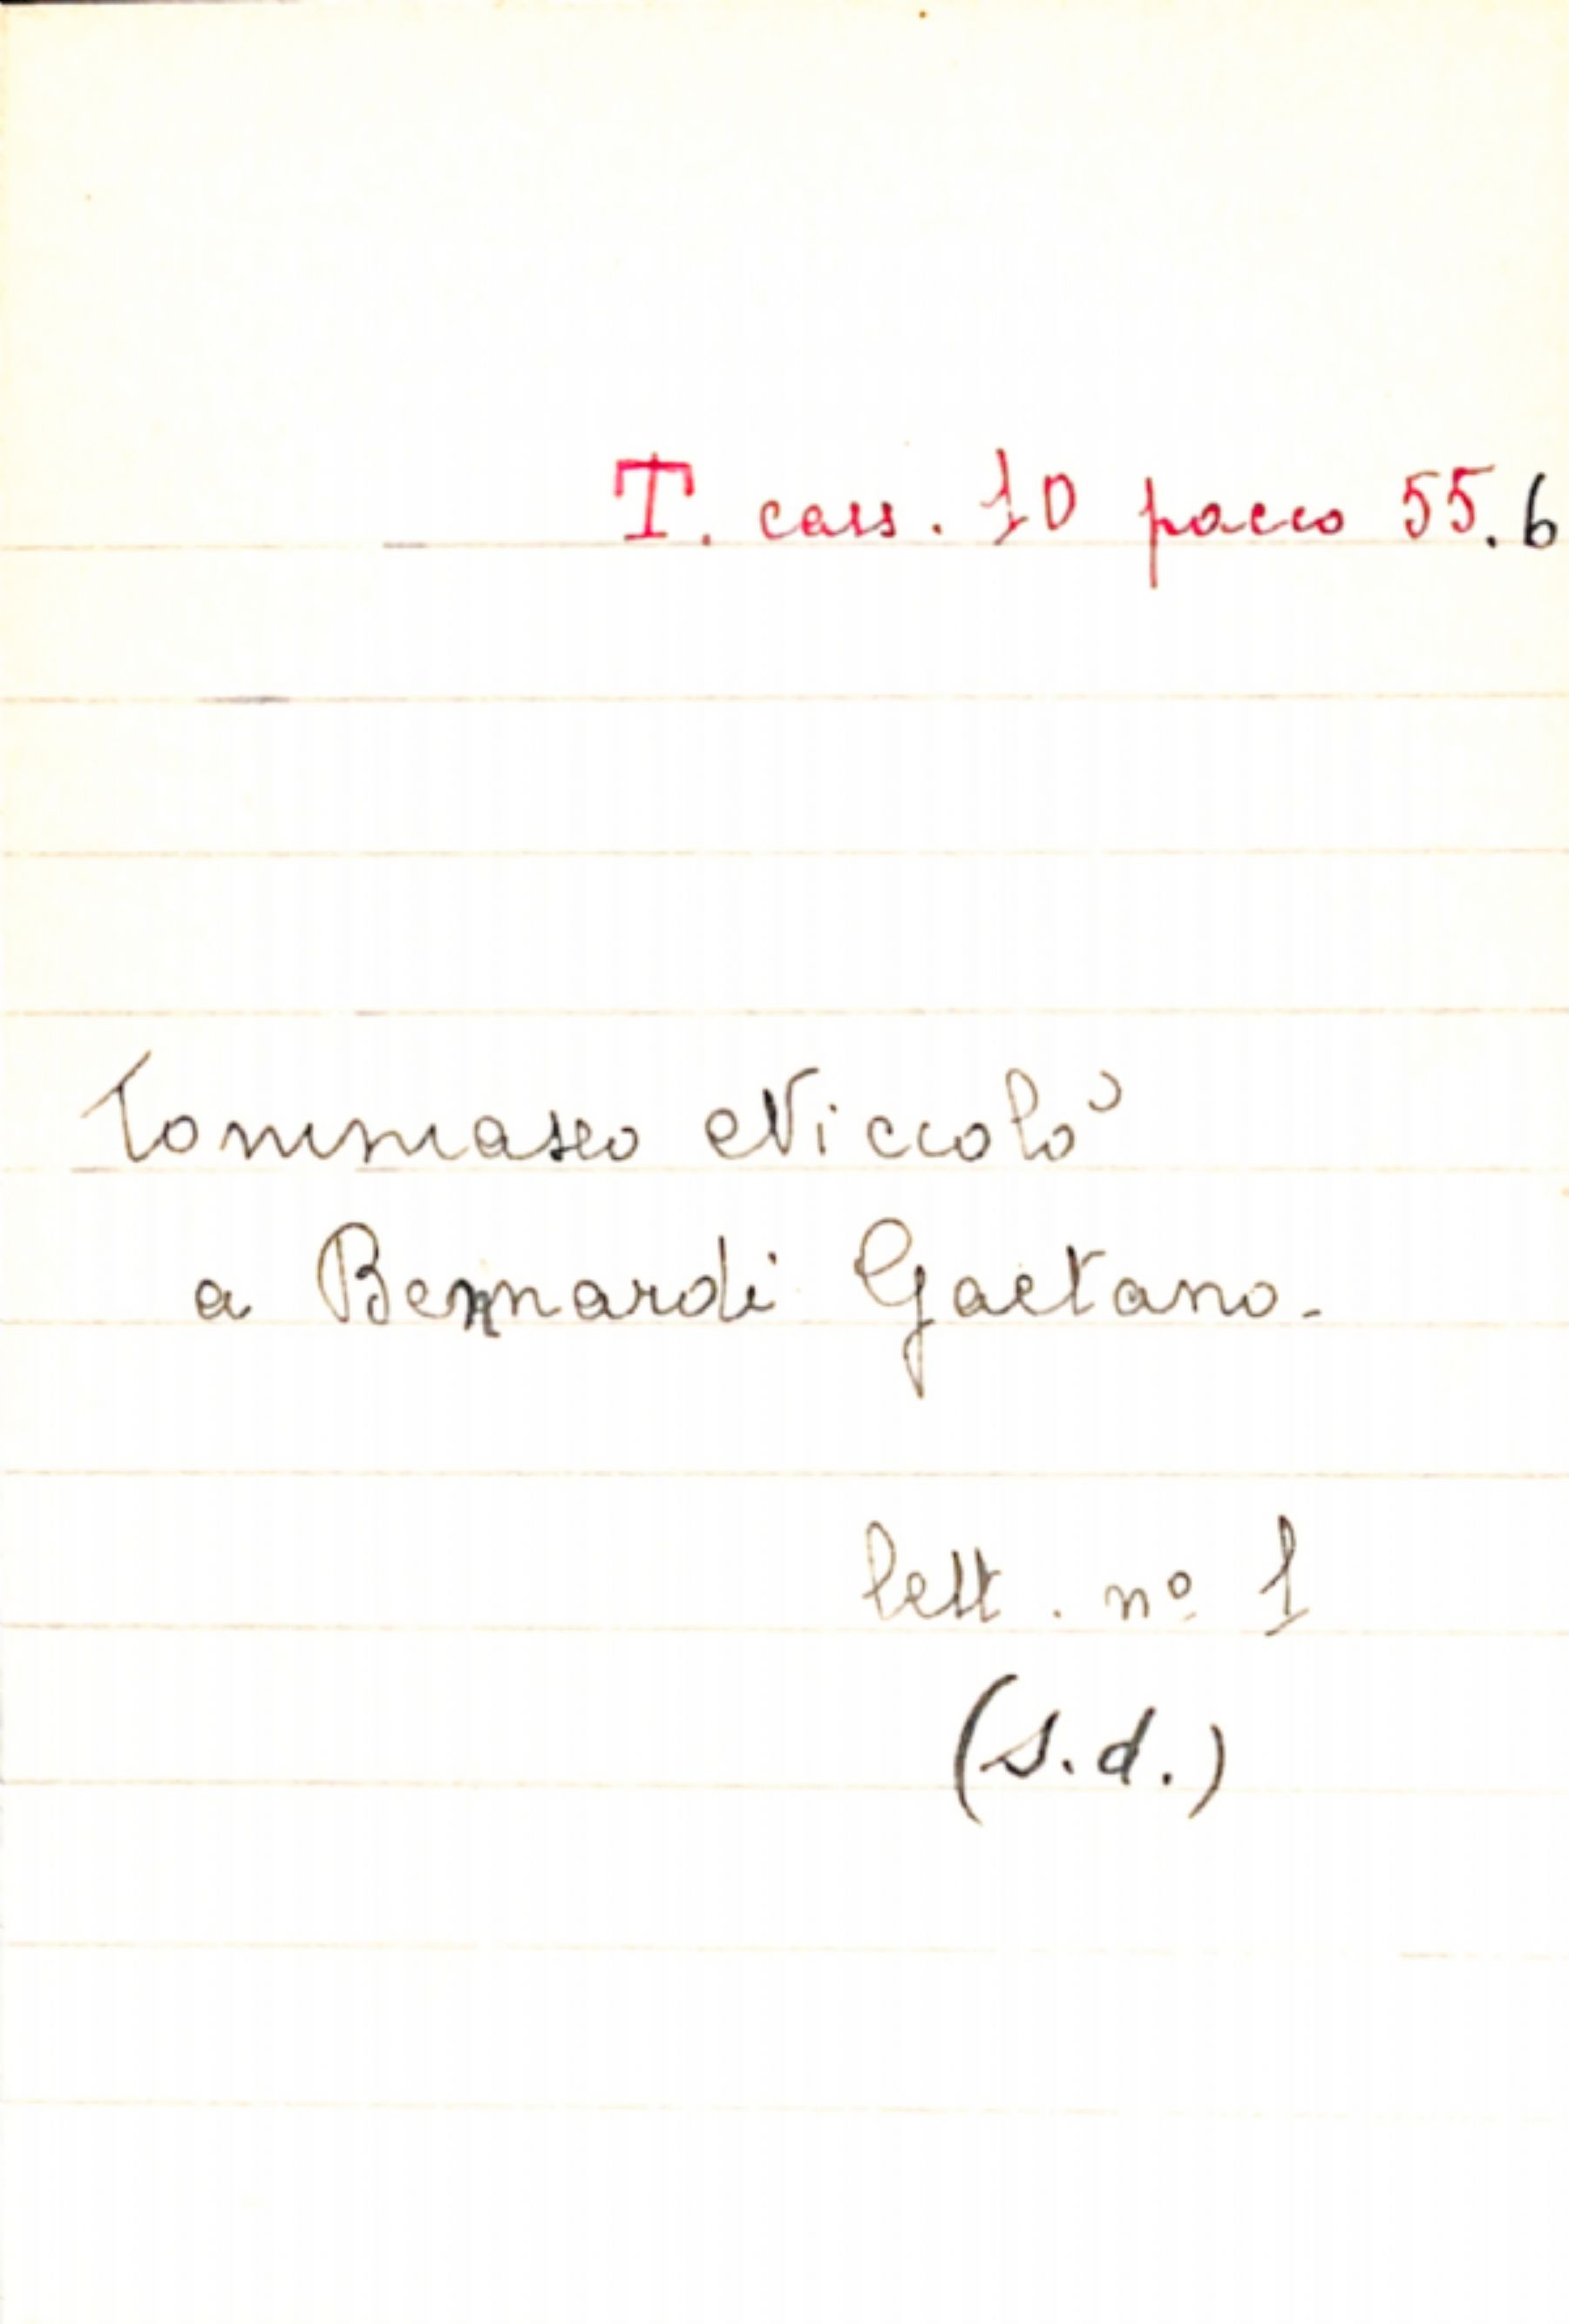 T. cass. 10 pacco 55.6
Tommaseo Niccolò
a Bernardi Gaetano.
lett. nº 1
(s.d.)